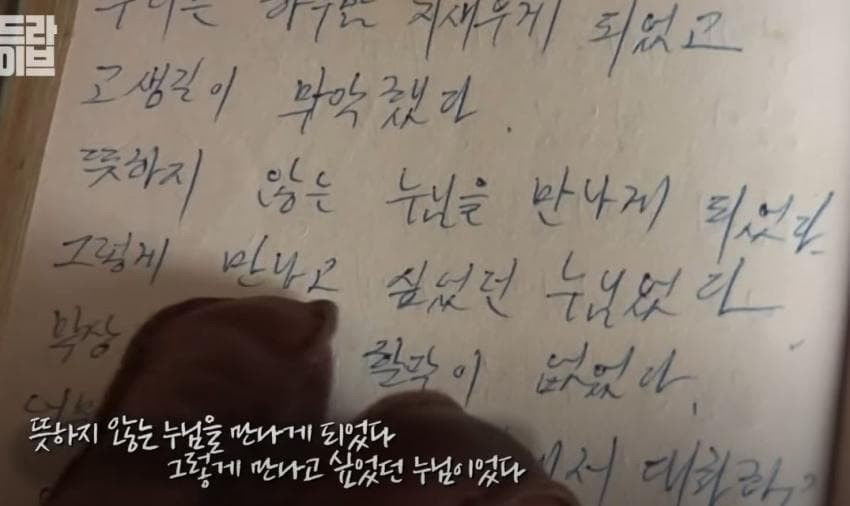 드라
이브
우리는 하루밤 지새우게 되었고
고생길이 막막했다.
뜻하지 않는 누님을 만나게 되었다.
그렇게 만나고 싶었던 누님었다.
막상 없었다.
대화
뜻하지 않는 누님을 만나게 되었다
그렇게 만나고 싶었던 누님이었다